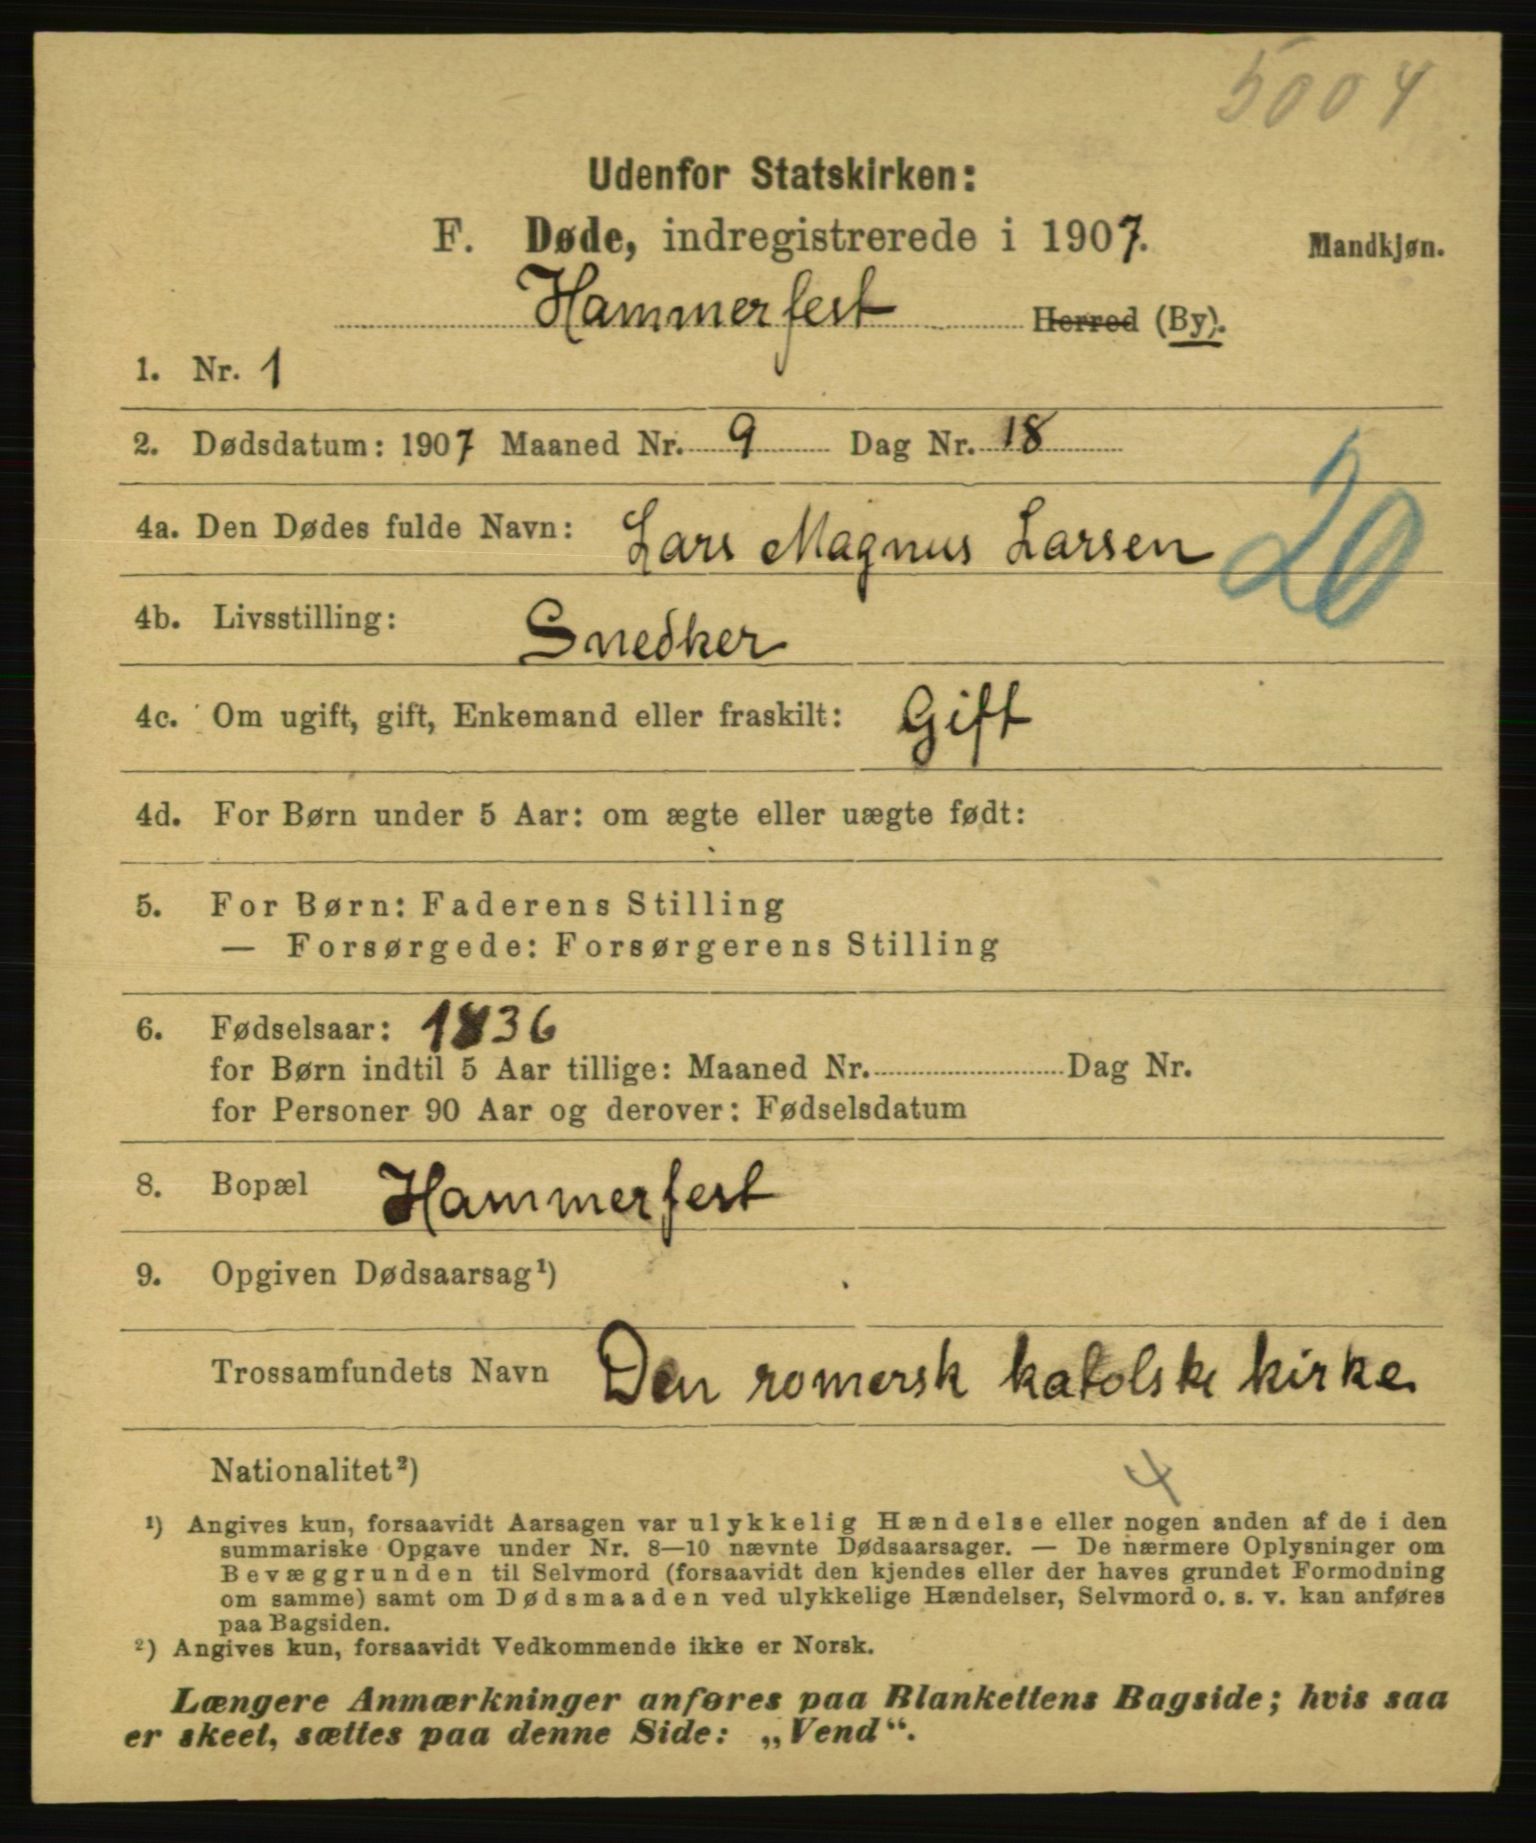 5004
Udenfor Statskirken:
F. Døde, indregistrerede i 1907. Mandkjøn.
Hammerfest Herred (By).
1. Nr. 1
2. Dødsdatum: 1907 Maaned Nr. 9 Dag Nr. 18
20
4a. Den Dødes fulde Navn: Lars Magnus Larsen
4b. Livsstilling: Snedker
4c. Om ugift, gift, Enkemand eller fraskilt: Gift
4d. For Børn under 5 Aar: om ægte eller uægte født:
5. For Børn: Faderens Stilling
— Forsørgede: Forsørgerens Stilling
6. Fødselsaar: 1836
for Børn indtil 5 Aar tillige: Maaned Nr. Dag Nr.
for Personer 90 Aar og derover: Fødselsdatum
8. Bopæl Hammerfest
9. Opgiven Dødsaarsag¹)
Trossamfundets Navn Den romersk katolske kirke.
Nationalitet²)
4
¹) Angives kun, forsaavidt Aarsagen var ulykkelig Hændelse eller nogen anden af de i den
summariske Opgave under Nr. 8—10 nævnte Dødsaarsager. — De nærmere Oplysninger om
Bevæggrunden til Selvmord (forsaavidt den kjendes eller der haves grundet Formodning
om samme) samt om Dødsmaaden ved ulykkelige Hændelser, Selvmord o. s. v. kan anføres
paa Bagsiden.
²) Angives kun, forsaavidt Vedkommende ikke er Norsk.
Længere Anmærkninger anføres paa Blankettens Bagside; hvis saa
er skeet, sættes paa denne Side: „Vend“.